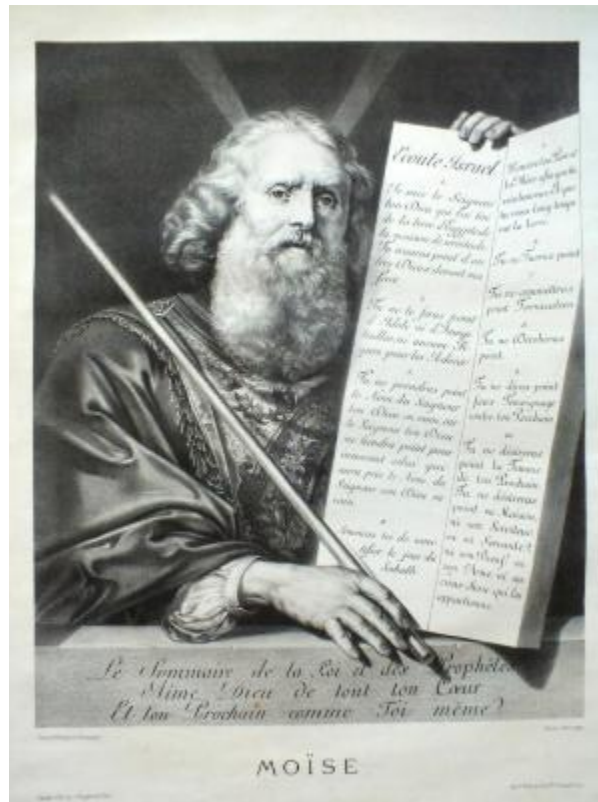 Ecoute Israel
Je suis le Seigneur
ton Dieu qui t'ai tiré
de la terre d'Egypte de
la maison de servitude
Tu n'auras point d'au
tres Dieux devant ma
face
Tu ne te feras point
d'Idole ni d'Image
taillée, ni aucune Fi
gure pour les Adorer
Tu ne prendras point
le Nom du Seigneur
ton Dieu en vain, car
le Seigneur ton Dieu
ne tiendra point pour
innocent celui qui
aura pris le Nom du
Seigneur son Dieu en
vain
Souviens toi de sanc
tifier le jour du
Sabath
Honore ton Père et
ta Mère afin que tu
sois heureux et que
tu vives long temps
sur la terre
6
Tu ne Tueras point
Tu ne commettras
point Fornication
Tu ne Deroberas
point
Tu ne diras point
faux Temoignage
contre ton Prochain
10
Tu ne desireras
point la Femme
de ton Prochain
Tu ne desireras
point sa Maison,
ni son Serviteur
ni sa Servante
ni son Bœuf ni
son Asne ni au
cune chose qui lui
appartienne
Le Sommaire de la Loi et des Prophètes
Aime Dieu de tout ton Cœur
Et ton Prochain comme Toi même
MOÏSE